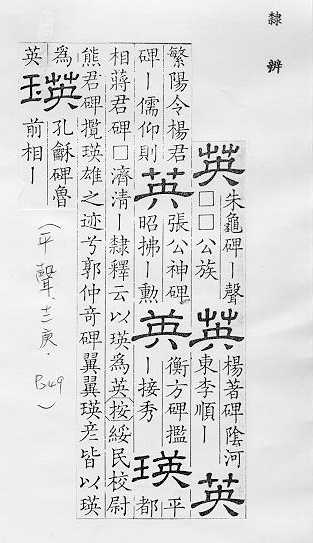 隸辨
英
朱龜碑ー聲
□□公族
英
楊著碑陰河
東李順ー
英
繁陽令楊君
碑ー儒仰則
英
張公神碑
昭拂ー勲
英
衡方碑㩜
ー接秀
瑛
平
都
相蔣君碑□濟清ー隸釋云以瑛為英按綏民校尉
熊君碑攬瑛雄之迹兮郭仲奇碑翼翼瑛彦皆以瑛
為
英
瑛
孔龢碑魯
前相ー
(平聲,十二庚.B49)